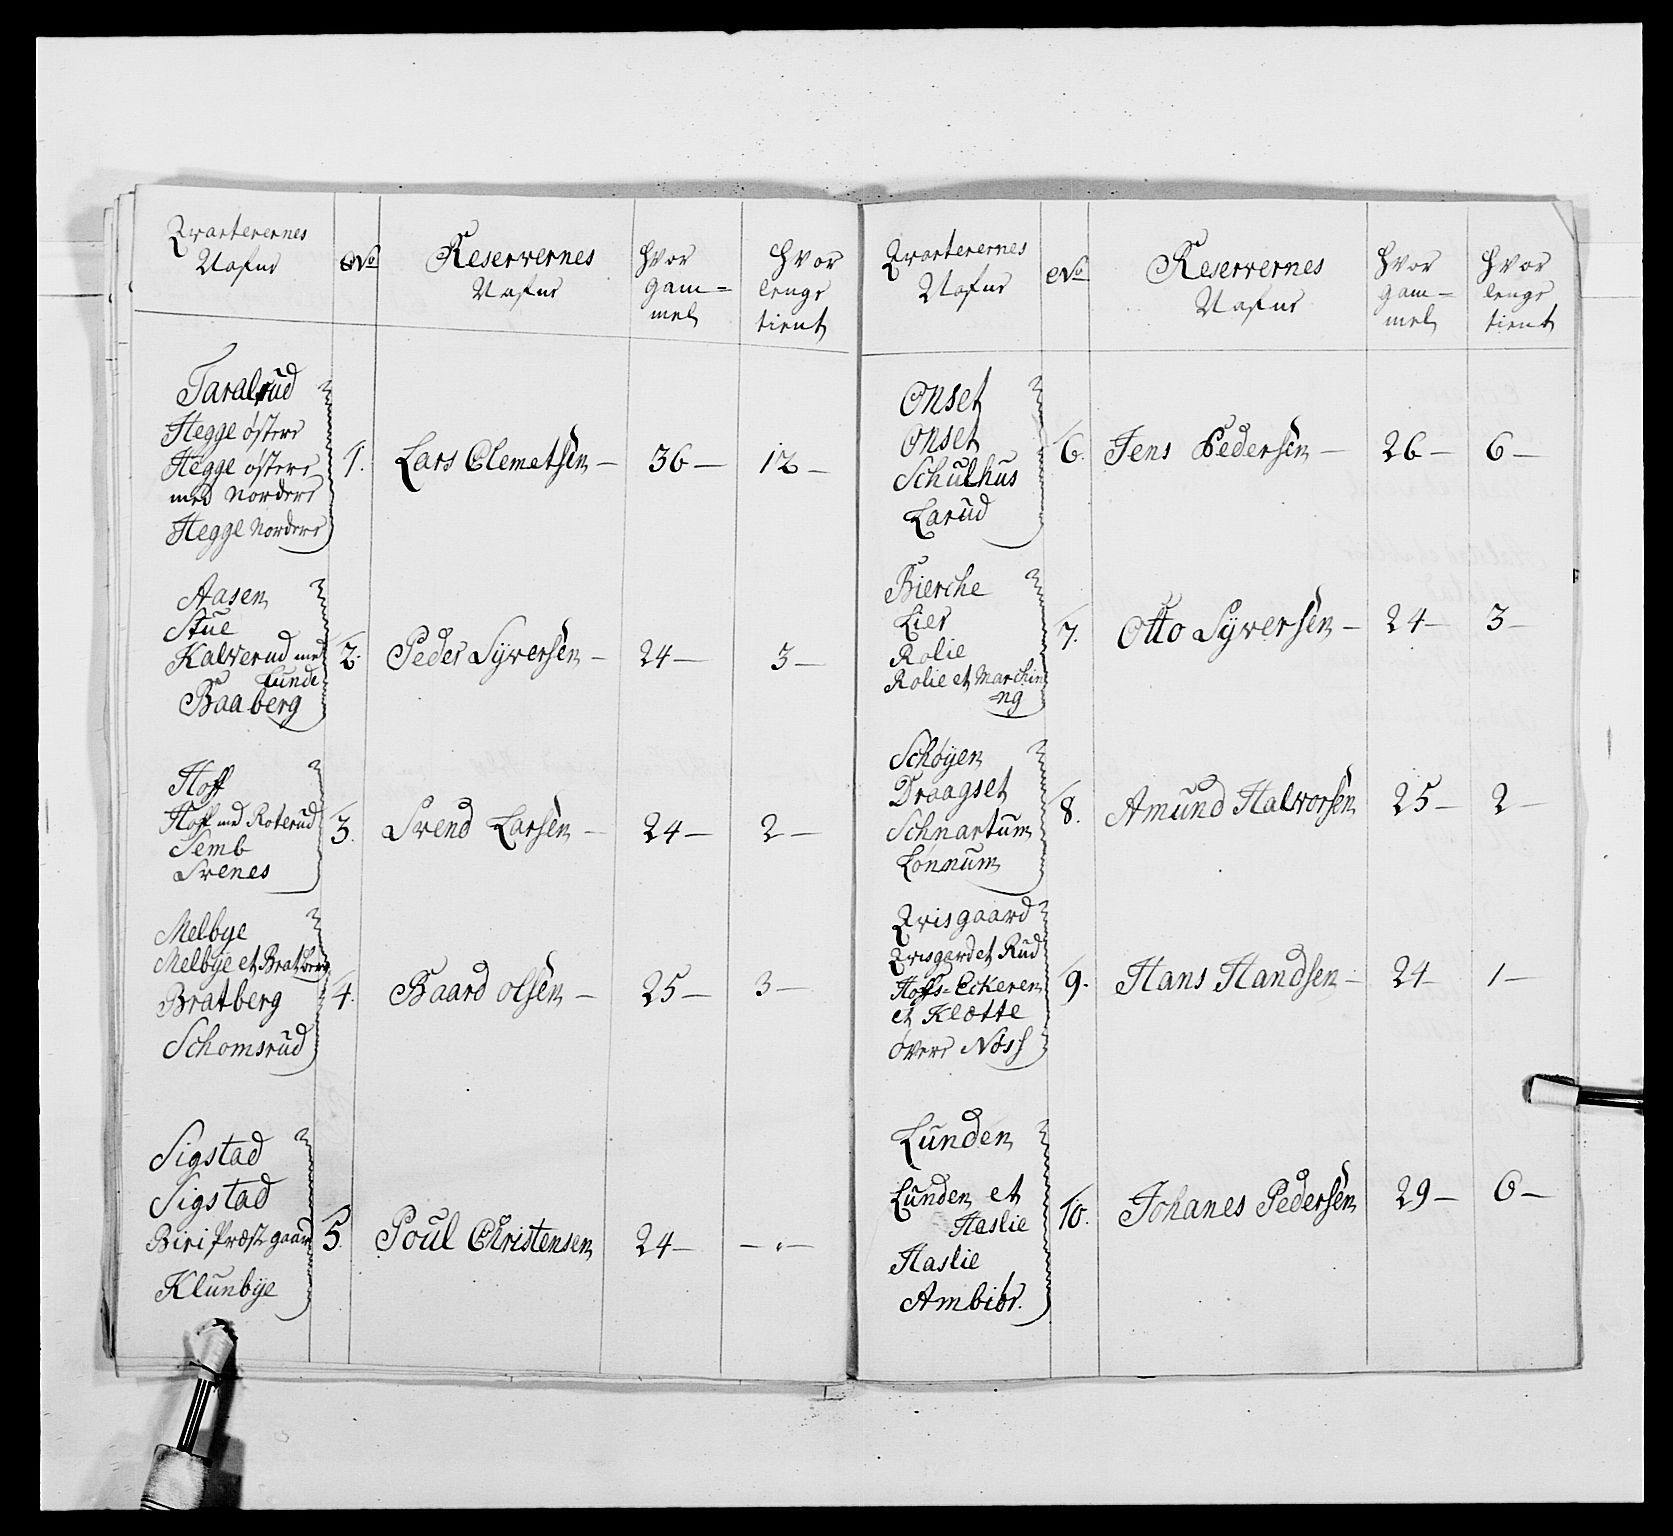 Qvarterernes
Nafne
No
Reservernes
Nafne
Hvor
gam=
mel
Hvor
lenge
tient
Taralrud
Hegge østere
Hegge østere
med Nordere
Hegge Nordere
1. Lars Clemetsen — 36 — 12 —
Aasen
Stue
Kalverud med
Lunde
Baaberg
2. Peder Syversen — 24 — 3 —
Hoff
Hoff med Roterud
Semb
Svenes
3. Svend Larsen — 24 — 2 —
Melbye
Melbye et Bratberg
Bratberg
Schomsrud
4. Baard Olsen — 25 — 3 —
Sigstad
Sigstad
Biri Præstgaard
Klunbye
5. Poul Christensen 24 — — " —
Qvarterernes
Nafne
No
Reservernes
Nafne
Hvor
gam=
mel
Hvor
lenge
tient
Onset
Onset
Schulhus
Larud
6. Jens Pedersen — 26 — 6 —
Bierche
Lier
Rolie
Rolie et Marchin
=ng
7. Otto Syversen — 24 — 3 —
Schøyen
Draagset
Schnartum
Lønnum
8. Amund Halvorsen 25 — 2 —
Qvisgaard
Qvisgard et Rud
Hoffs-Eckeren
et Kløtte
øvere Nøss
9. Hans Handsen — 24 — 1 —
Lunden
Lunden et
Haslie
Haslie
Ambiør.
10. Johanes Pedersen 29 — 6 —